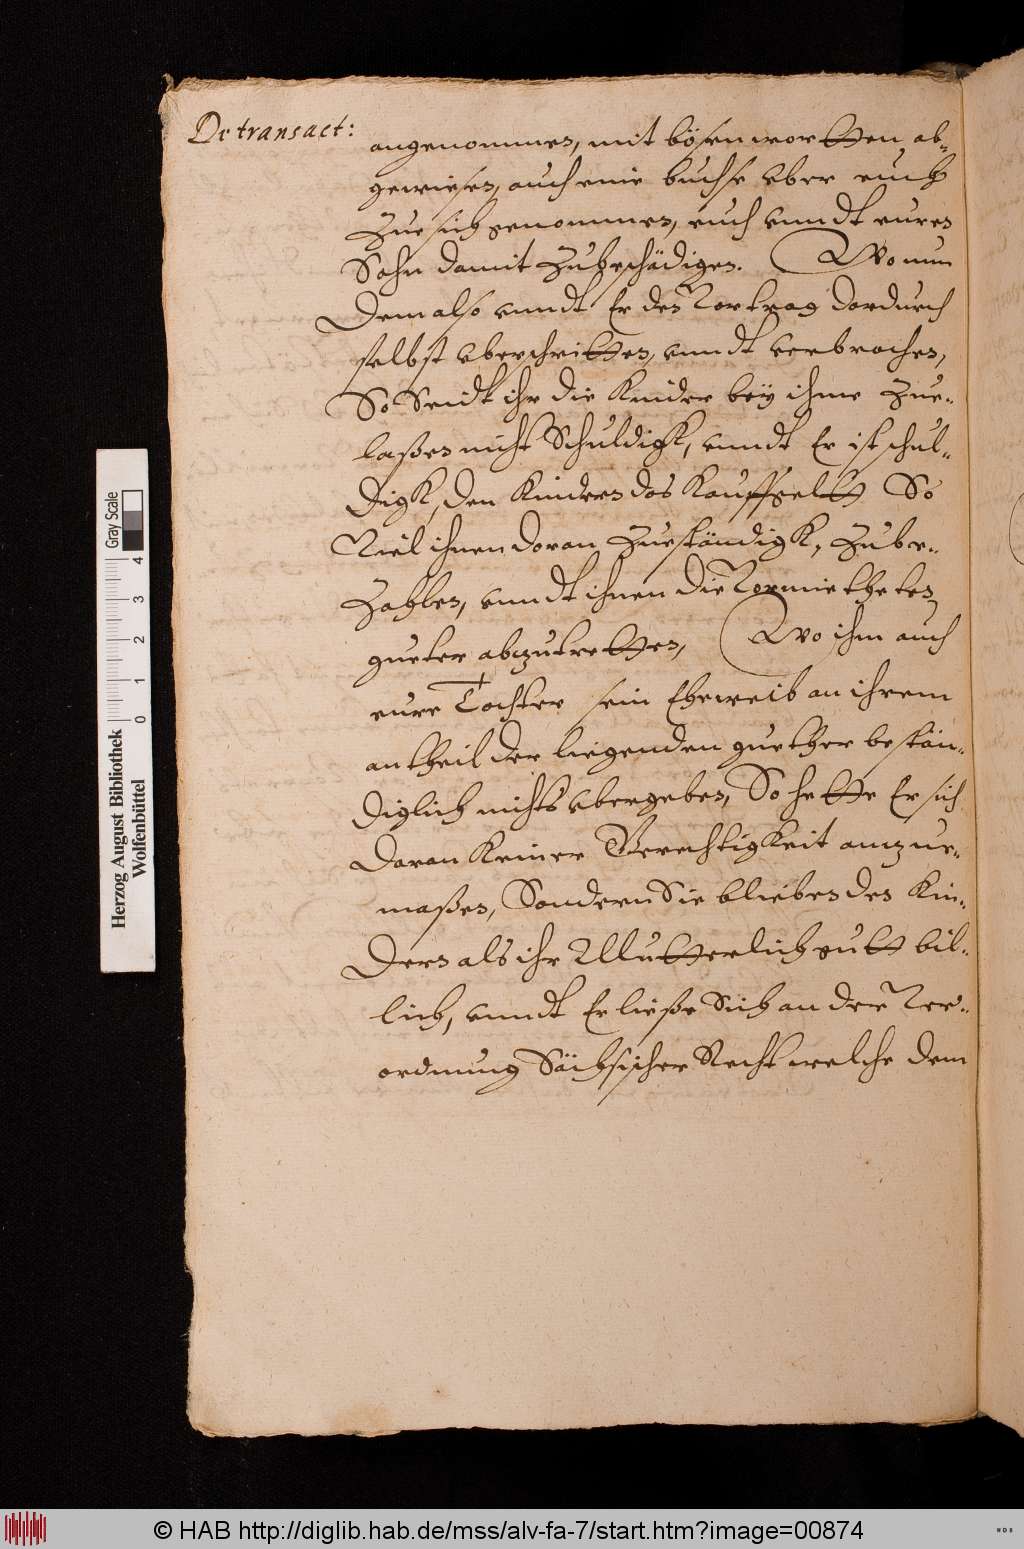 De transact:
angenommen, mit bösen wortten ab-
gewiesen, auch eine buchse vber euch
Zue sich genommen, euch vnndt euren
Sohn damit Zubeschädigen. Wo nun
Dem also vnndt Er den Vortrag dardurch
selbst vberschritten, vnndt verbrochen,
So Seidt ihr die Kinder beÿ ihme Zue-
laßen nicht Schuldigk, vnndt Er ist schul-
digk, den Kindern das Kauffgeltt So
Viel ihnen daran Zueständigk, Zube-
Zahlen, vnndt ihnen die Vormietheten
gueter abzutretten, Wo ihm auch
eure Tochter sein Eheweib an ihrem
antheil der liegenden guether bestän-
diglich nichts vbergeben, So hette Er sich
daran Keiner Gerechtigkeit anzue-
maßen, Sondern Sie blieben den Kin-
dern als ihr Mutterlich gutt bil-
lich, vnndt Er ließe Sich an der Ver-
ordnung Sächsischer Recht welche dem
Herzog August Bibliothek
Wolfenbüttel
0 1 2 3 4
Gray Scale
© HAB http://diglib.hab.de/mss/alv-fa-7/start.htm?image=00874